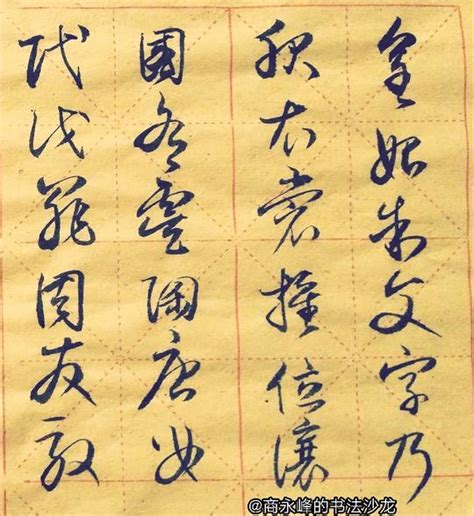 皇始制文字乃
服衣裳推位讓
國有虞陶唐弔
民伐罪周發殷
@商永峰的书法沙龙